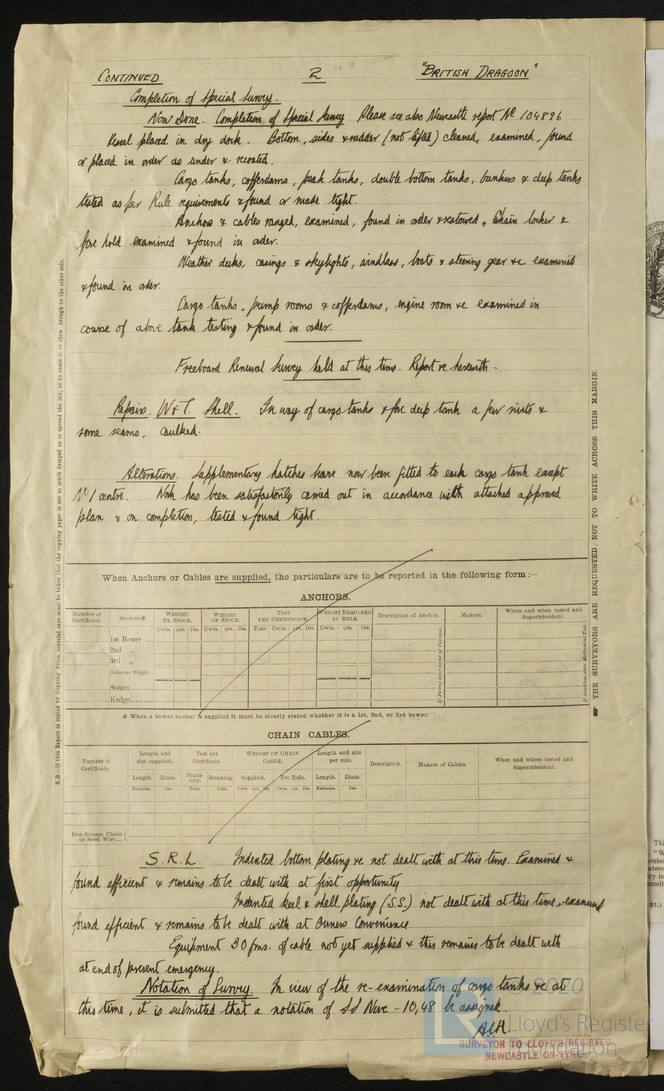 CONTINUED 2 "BRITISH DRAGOON"
Completion of Special Survey.
Now Done. Completion of Special Survey Please see also Newcastle report No 104896
Vessel placed in dry dock. Bottom, sides & rudder (not lifted) cleaned, examined, found
or placed in order as under & recoated.
Cargo tanks, cofferdams, peak tanks, double bottom tanks, bunkers & deep tanks
tested as per Rule requirements & found or made tight.
Anchors & cables ranged, examined, found in order & restowed. Chain locker &
fore hold examined & found in order.
Weather decks, casings & skylights, windlass, boats & steering gear &c examined
& found in order.
Cargo tanks, pump rooms & cofferdams, engine room &c examined in
course of above tank testing & found in order.
Freeboard Renewal Survey held at this time. Report &c herewith.
Repairs. W&T. Shell. In way of cargo tanks & for deep tank a few rivets &
some seams, caulked.
Alterations. Supplementary hatches have now been fitted to each cargo tank except
No 1 centre. Work has been satisfactorily carried out in accordance with attached approved
plan & on completion, tested & found tight.
When Anchors or Cables are supplied, the particulars are to be reported in the following form:—
ANCHORS.
Number of Certificate. Anchors※ WEIGHT. EX. STOCK. WEIGHT OF STOCK. TEST PER CERTIFICATE. WEIGHT REQUIRED BY RULE. Description of Anchor. Makers. Where and when tested and Superintendent.
Cwts. qrs. lbs. Cwts. qrs. lbs. Tons Cwts. qrs. lbs. Cwts. qrs. lbs.
1st Bower ...
2nd „
3rd „
Collective Weight.
Stream
Kedge
※ When a bower anchor is supplied it must be clearly stated whether it is a 1st, 2nd, or 3rd bower.
CHAIN CABLES.
Number of Certificate Length and size supplied. Test per Certificate. WEIGHT OF CHAIN CABLE. Length and size per rule. Description. Makers of Cables When and where tested and Superintendent.
Length. Diam. Statutory. Breaking. Supplied. Per Rule. Length. Diam.
Fathoms. Ins. Tons. Tons. Cwts. qrs. lbs. Cwts. qrs. lbs. Fathoms. Ins.
Iron Stream Chain
or Steel Wire
S.R.L Indented bottom plating &c not dealt with at this time. Examined &
found efficient & remains to be dealt with at first opportunity
Indented keel & shell plating (S.S.) not dealt with at this time, examined
found efficient & remains to be dealt with at Owners Convenience
Equipment 30 fms. of cable not yet supplied & this remains to be dealt with
at end of present emergency.
Notation of Survey. In view of the re-examination of cargo tanks &c at
this time, it is submitted that a notation of SS Nwc - 10,48 be assigned.
SURVEYOR TO LLOYD'S REGISTER
NEWCASTLE-ON-TYNE
© 2020
Lloyd's Register
Foundation
THE SURVEYORS ARE REQUESTED NOT TO WRITE ACROSS THIS MARGIN.